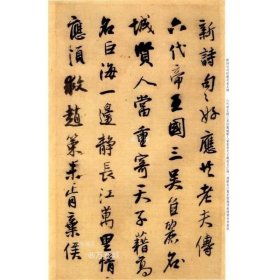 新詩句々好應任老夫傳
六代帝王國三吳佳麗
城賢人當重寄天子藉高
名巨海一邊靜長江萬里清
應須救趙策未肯棄侯